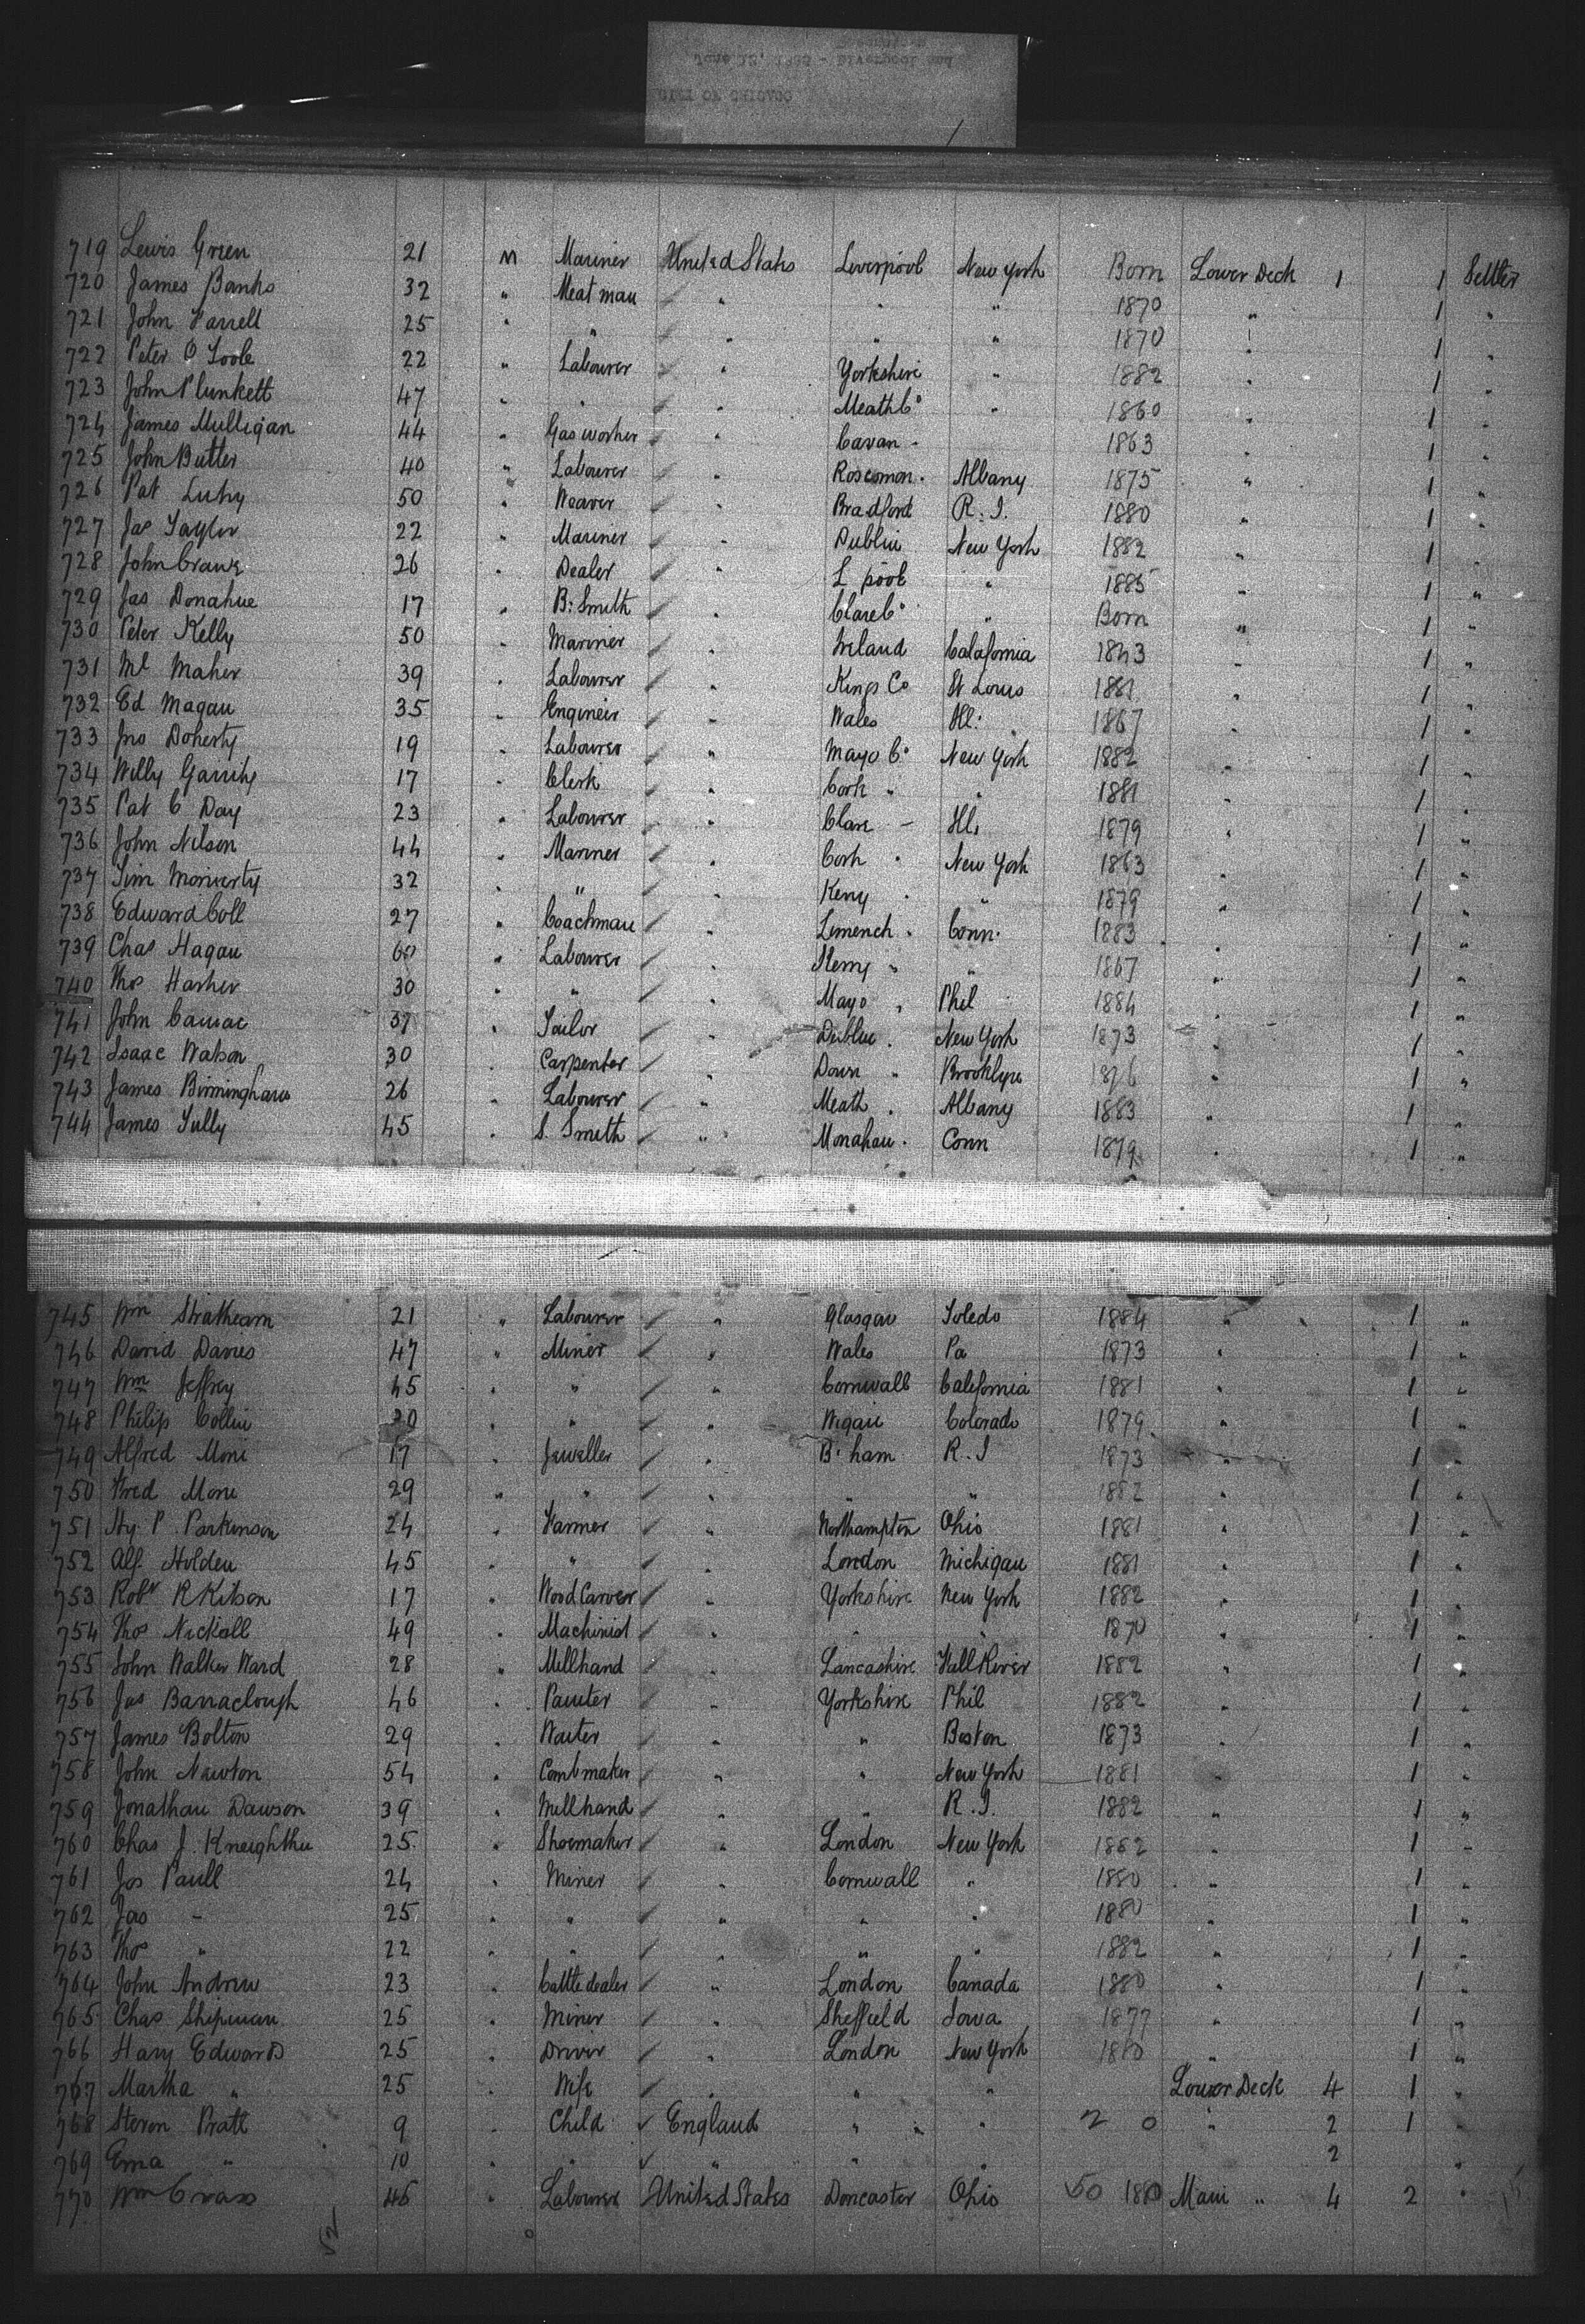 June 12, 1885 - Liverpool and
CITY OF CHICAGO
719 Lewis Green 21 M Mariner United States Liverpool New York Born Lower Deck 1 1 Settler
720 James Banks 32 " Meat man " " " 1870 " 1 "
721 John Farrell 25 " " " " " 1870 " 1 "
722 Peter O Toole 22 " Labourer " Yorkshire " 1882 " 1 "
723 John Plunkett 47 " " " Meath Co " 1860 " 1 "
724 James Mulligan 44 " Gas worker " Cavan " 1863 " 1 "
725 John Butler 40 " Labourer " Roscomon " Albany 1875 " 1 "
726 Pat 50 " Weaver " Bradford R. I. 1880 " 1 "
727 Jas Taylor 22 " Mariner " Dublin New York 1882 " 1 "
728 John Crane 26 " Dealer " L pool " 1885 " 1 "
729 Jas Donahue 17 " B. Smith " Clare Co " Born " 1 "
730 Peter Kelly 50 " Mariner " Ireland Calafornia 1843 " 1 "
731 Ml Maher 39 " Labourer " Kings Co St Louis 1881 " 1 "
732 Ed Magan 35 " Engineer " Wales Ill: 1867 " 1 "
733 Jno Doherty 19 " Labourer " Mayo Co New York 1882 " 1 "
734 Willy 17 " Clerk " Cork " " 1881 " 1 "
735 Pat C Day 23 " Labourer " Clare - Ill, 1879 " 1 "
736 John Nilson 44 " Mariner " Cork " New York 1863 " 1 "
737 Tim Moriverty 32 " " " Kerry " " 1879 " 1 "
738 Edward Coll 27 " Coachman " Limerick " Conn. 1883 " 1 "
739 Chas Hagan 60 " Labourer " Kerry " " 1867 " 1 "
740 Thos Harker 30 " " " Mayo " Phil 1884 " 1 "
741 John Camac 37 " Tailor " Dublin " New York 1873 " 1 "
742 Isaac Watson 30 " Carpenter " Down " Brooklyn 1876 " 1 "
743 James Birmingham 26 " Labourer " Meath " Albany 1883 " 1 "
744 James Tully 45 " S. Smith " Monahan " Conn 1879 " 1 "
745 Wm Strathearn 21 " Labourer " Glasgow Toledo 1884 " 1 "
746 David Davies 47 " Miner " Wales Pa 1873 " 1 "
747 Wm Jeffrey 45 " " " Cornwall California 1881 " 1 "
748 Philip Collin 20 " " " Wigan Colorado 1879 " 1 "
749 Alfred More 17 " Jeweller " B. ham R. I 1873 " 1 "
750 Fred More 29 " " " " " 1882 " 1 "
751 Hy. P. Parkinson 24 " Farmer " Northampton Ohio 1881 " 1 "
752 Alf. Holden 45 " " " London Michigan 1881 " 1 "
753 Robt R Kitson 17 " Wood Carver " Yorkshire New York 1882 " 1 "
754 Thos Nickoll 49 " Machinist " " " 1870 " 1 "
755 John Walker Ward 28 " Millhand " Lancashire Fall River 1882 " 1 "
756 Jas Barraclough 46 " Painter " Yorkshire Phil 1882 " 1 "
757 James Bolton 29 " Waiter " " Boston 1873 " 1 "
758 John Newton 54 " Combmaker " " New York 1881 " 1 "
759 Jonathan Dawson 39 " Millhand " " R. I. 1882 " 1 "
760 Chas J. 25 " Shoemaker " London New York 1882 " 1 "
761 Jos Paull 24 " Miner " Cornwall " 1880 " 1 "
762 Jas - 25 " " " " " 1880 " 1 "
763 Thos " 22 " " " " " 1882 " 1 "
764 John Andrew 23 " Cattle dealer " London Canada 1880 " 1 "
765 Chas Shipman 25 " Miner " Sheffield Iowa 1877 " 1 "
766 Harry Edwards 25 " Driver " London New York 1880 " 1 "
767 Martha " 25 " Wife " " " Lower Deck 4 1 "
768 Steven Pratt 9 " Child England " " 2 0 " 2 1 "
769 Ema " 10 " " " " " 2 "
770 Wm 45 " Labourer United States Doncaster Ohio 50 1880 Main " 4 2 "